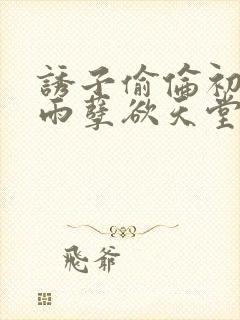 誘子偷倫初
雨孽欲天堂
飛爺